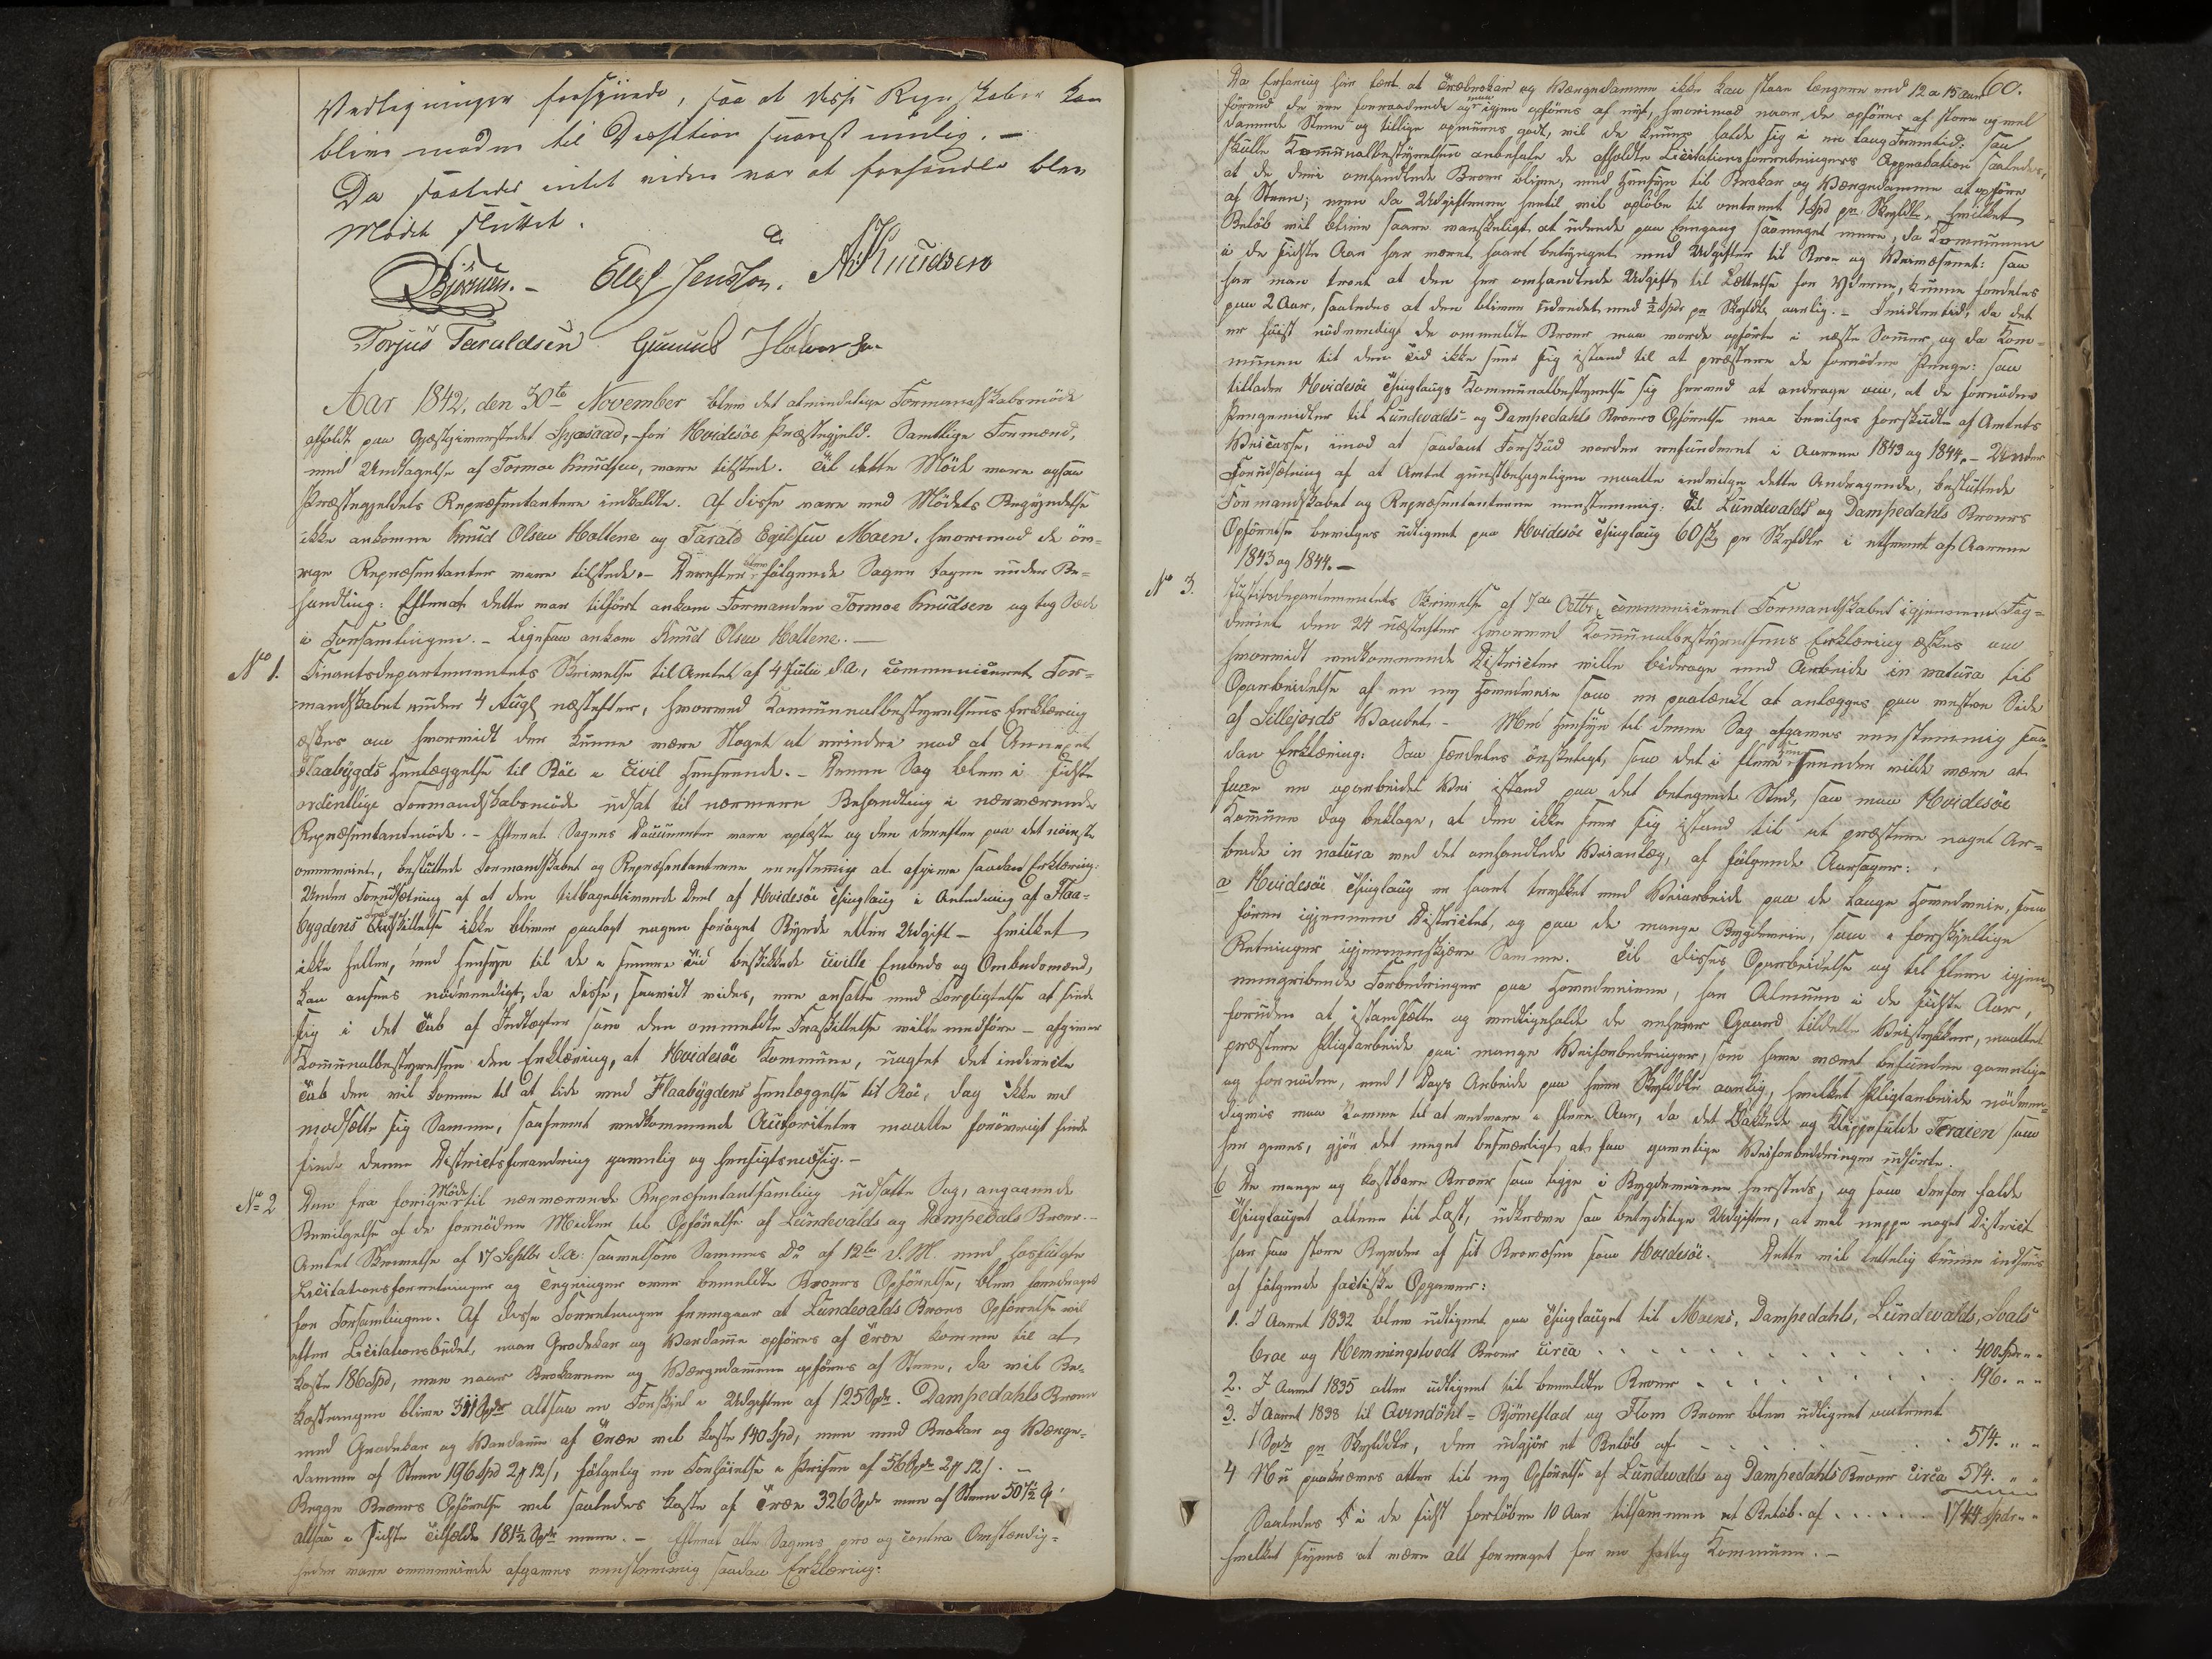 Vedtegninger forsÿnede, saa at disse Regnskaber kan
blive moden til Decision snarest mulig. —
Da saaledes intet videre var at forhandle blev
Mödet sluttet.
Björnsen. — Ellef Jensson. A. Knudsen
Torjus Taraldsen Gunnuld Halvorsen
Aar 1842, den 30te November blev det almindelige Formandskabsmöde
afholdt paa Gjæstgiverstedet SpaSaad, for Hvidesöe Præstegjeld. Samtlige Formænd,
med Undtagelse af Tormoe Knudsen, vare tilstede. Til dette Möde vare ogsaa
Præstegjeldets Repræsentantere indkaldte. Af disse vare ved Mödets Begyndelse
ikke ankomne Knud Olsen Holtene og Tarald Egildsen Moen, hvorimod de öv-
rige Repræsentanter vare tilstede. — Derefter blev fölgende Sager tagne under Be-
handling: Efterat dette var tilfört ankom Formanden Tormoe Knudsen og tog Sæde
i Forsamlingen. — Ligesaa ankom Knud Olsen Holtene. —
No 1. Finantsdepartementets Skrivelse til Amtet af 4 Julii d. A., communiceret For-
mandskabet under 4 Augs næstefter, hvorved Kommunalbestyrelsens Erklæring
æskes om hvorvidt der kunne være Noget at erindre mod at Annexet
Flaabygds Henlæggelse til Böe i Civil Henseende. — Denne Sag blev i sidste
ordentlige Formandskabsmöde udsat til nærmere Behandling i nærværende
Repræsentantmöde. — Efterat Sagens Documenter vare oplæste og den derefter paa det nöieste
overveiet, besluttede Formandskabet og Repræsentanterne eenstemmig at afgive saadan Erklæring:
Under Forudsætning af at den tilbageblivende Deel af Hvidesöe Thinglaug i Anledning af Flaa-
bygdens Fraskillelse ikke bliver paalagt nogen foröget Byrde eller Udgift — hvilket
ikke heller, med Hensyn til de i senere Tid beskikkede civille Embeds og Ombudsmænd,
kan ansees nödvendigt, da disse, saavidt vides, ere ansatte med Forpligtelse at finde
sig i det Tab af Indtægter som den ommeldte Fraskillelse ville medföre — afgiver
Kommunalbestyrelsen den Erklæring, at Hvidesöe Kommune, uagtet det indirecte
Tab den vil komme til at lide ved Flaabygdens Henlæggelse til Böe, dog ikke vil
modsætte sig Samme, saafremt vedkommende Authoriteter maatte foröverigt finde
finde denne Districtsforandring gavnlig og hensigtsmæsig. —
No 2 Den fra forrige Möde til nærværende Repræsentantsamling udsatte Sag, angaaende
Bevilgelse af de fornödne Midler til Opförelse af Lundevalds og Dampedals Broer. —
Amtet Skrivelse af 17 Septbr d. A. saavelsom Sammes Do af 12te d. M. med hosfulgte
Licitationsforretninger og Tegninger over bemeldte Broers Opförelse, blev foredraget
for Forsamlingen. Af disse Forretninger fremgaaer at Lundevalds Broes Opförelse vil
efter Licitationsbudet, naar Grodekar og Vardamme opföres af Træe komme til at
koste 186 Spd, men naar Brokarrene og Værgedammene opföres af Steen, da vil Be-
kostningen blive 311 Spdr altsaa en Forskjel i Udgiften af 125 Spdr. Dampedahls Broe
med Grodekar og Vardamme af Træe vil koste 140 Spd, men med Brokar og Værge-
damme af Steen 196 Spd 2 ₰ 12 /, fölgelig en Forhöielse i Prisen af 56 Spdr 2 ₰ 12 /. —
Begge Broers Opförelse vil saaledes koste af Træe 326 Spdr men af Steen 507½ Sp.
altsaa i sidste Tilfælde 181½ Spdr mere. — Efterat alle Sagens pro og contra Omstændig-
heder vare overveiede afgaves eenstemmig saadan Erklæring:
60.
Da Erfaring har lært at Træbrokar og Værgedamme ikke kan staae længere end 12 a 15 Aar
förend de ere forraadnede og maa igjen opföres af nyt, hvorimod naar de opföres af store og vel
dannede Stene og tillige opmures godt, vil de kunne holde sig i en lang Fremtid: saa
skulle Kommunalbestyrelsen anbefale de afholdte Licitationsforretningers Approbation saaledes,
at de deri omhandlede Broer blive, med Hensyn til Brokar og Værgedamme at opföre
af Steen; men da Udgifterne hertil vil oplöbe til omtrent 1 Spd pr Skyldlr, hvilket
Belöb vil blive saare vanskeligt at udrede paa Eengang saameget mere, da Kommunen
i de sidste Aar har været haart betynget med Udgifter til Broe og Veivæsenet: saa
har man troet at den her omhandlede Udgift til Lettelse for Yderne, kunne fordeles
paa 2 Aar, saaledes at den bliver udredet med ½ Spdr pr Skyldlr aarlig. — Imidlertid, da det
er höist nödvendigt de ommeldte Broer maa vorde opförte i næste Sommer, og da Kom-
munen til den Tid ikke seer sig istand til at præstere de fornödne Penge: saa
tillader Hvidesöe Thinglaugs Kommunalbestyrelse sig herved at andrage om, at de fornödne
Pengemidler til Lundevalds- og Dampedahls Broers Opförelse maa bevilges forskudt af Amtets
Veicasse, imod at saadant Forskud vorder refunderet i Aarene 1843 og 1844. — Under
Forudsætning af at Amtet gunstbehageligen maatte indvilge dette Andragende, besluttede
Formandskabet og Repræsentanterne eenstemmig: Til Lundevalds og Dampedahls Broers
Opförelse bevilges udlignet paa Hvidesöe Thinglaug 60 / pr Skyldlr i ethvert af Aarene
1843 og 1844. —
No 3. Justitsdepartementets Skrivelse af 7de Octbr, communiceret Formandskabet igjennem Fog-
deriet den 24 næstefter hvorved Kommunalbestyrelsens Erklæring æskes om
hvorvidt vedkommende Districter ville bidrage med Arbeide in natura til
Oparbeidelse af en ny Hovedvei som er paatænkt at anlægges paa vestre Side
af Sillejords Vandet. — Med Hensyn til denne Sag afgaves eenstemmig saa-
dan Erklæring: Saa særdeles önskeligt, som det i flere Henseender vilde være at
faae en oparbeidet Vei istand paa det betegnede Sted, saa maa Hvidesöe
Kommune dog beklage, at den ikke seer sig istand til at præstere noget Ar-
beide in natura ved det omhandlede Veianlæg, af fölgende Aarsager:
a Hvidesöe Thinglaug er haart trykket med Veiarbeide paa de lange Hovedveie, som
förer igjennem Districtet, og paa de mange Bygdeveie, som i forskjellige
Retninger igjennemskjære Samme. Til disses Oparbeidelse og til flere igjen-
nemgribende Forbedringer paa Hovedveiene, har Almuen i de sidste Aar,
foruden at istandsætte og vedligeholde de enhver Gaard tildelte Veistykker, maattet
præstere Pligtarbeide paa mange Veiforbedringer, som have været befunden gavnlige
og fornödne, med 1 Dags Arbeide paa hver Skylddlr aarlig, hvilket Pligtarbeide nödven-
digvis maa komme til at vedvare i flere Aar, da det Bakkede og Klippefulde Terrain som
her gives, gjör det meget besværligt at faa gavnlige Veiforbeddringer udförte.
b De mange og kostbare Broer som ligge i Bygdeveiene hersteds, og som derfor falde
Thinglauget allene til Last, udkræve saa betydelige Udgifter, at vel neppe noget District
har saa store Byrder af sit Brovæsen som Hvidesöe. Dette vil lettelig kunne indsees
af fölgende factiske Opgaver:
1. I Aaret 1832 blev udlignet paa Thinglauget til Moens, Dampedahls, Lundevalds, Svals
broe og Hemmingstvedt Broer circa . . . . . . . . 400 Spdr " "
2. I Aaret 1835 atter udlignet til bemeldte Broer . . . . . . . . 196. " "
3. I Aaret 1838 til Qvindöhl- Björnestad og Flom Broer blev udlignet omtrent
1 Spdr pr Skylddlr, der udgjör et Belöb af . . . . . . . . 574. " "
4 Nu paakræves atter til ny Opförelse af Lundevalds og Dampedahls Broer circa 574. " "
Saaledes i de sidst forlöbne 10 Aar tilsammen et Belöb af . . . . . . 1744 Spdr " "
hvilket synes at være alt formeget for en fattig Kommune. —